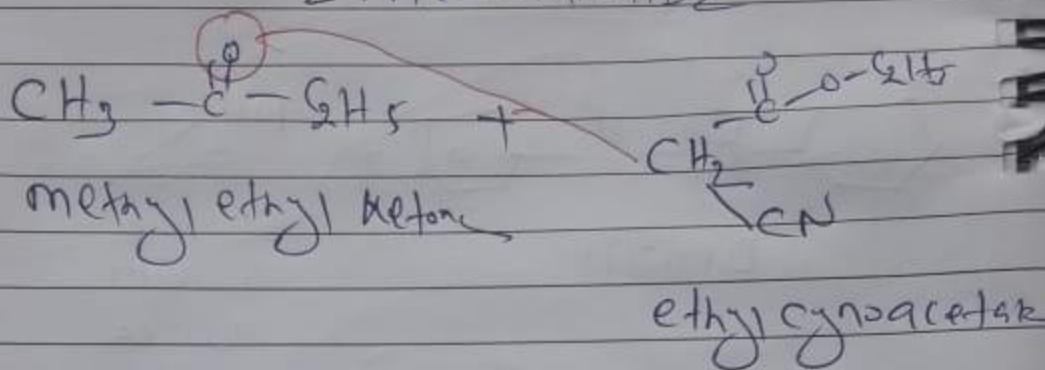 O O
CH3 - C - C2H5 + C - O - C2H5
CH2
CN
methyl ethyl ketone
ethyl cynoacetate